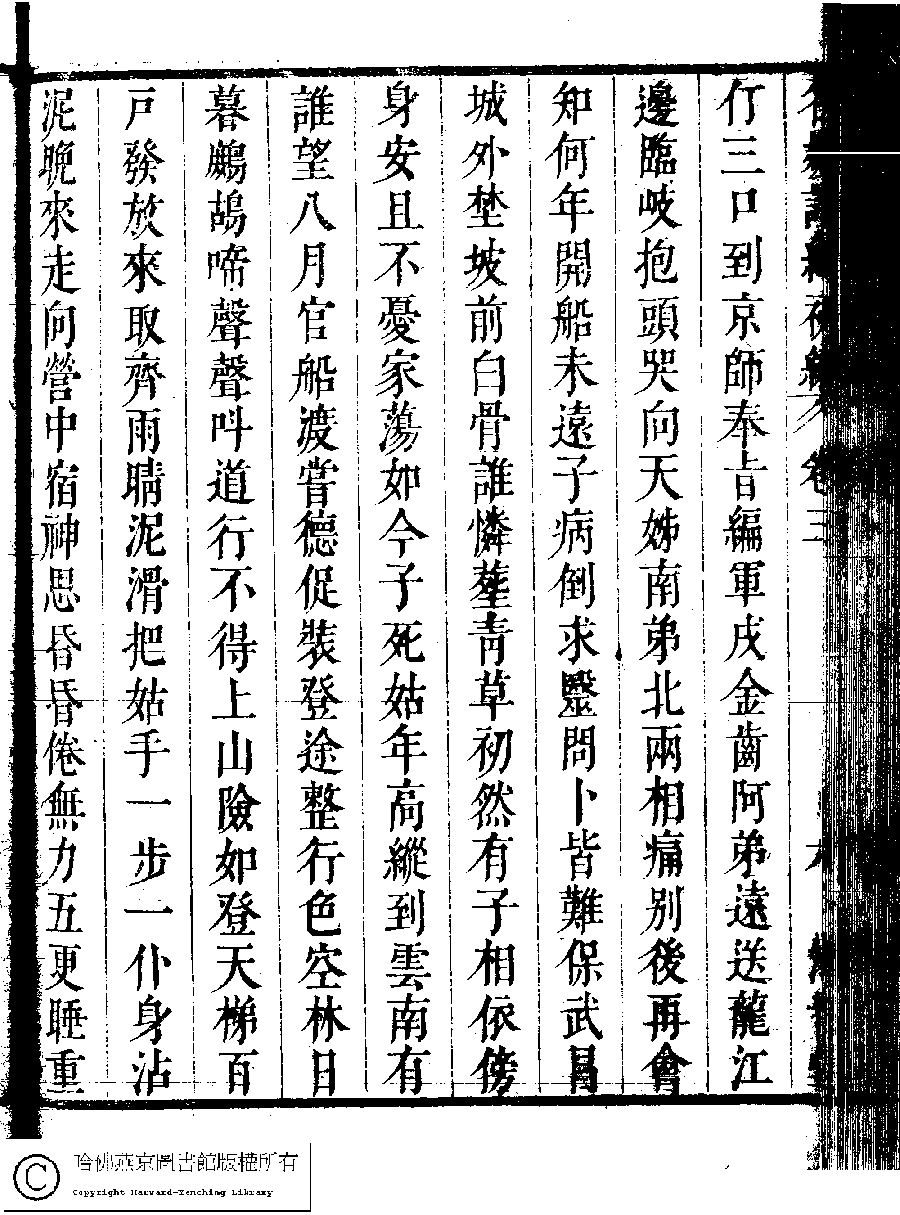 卷三
仃三口到京師奉旨編軍戍金齒阿弟遠送龍江
邊臨岐抱頭哭向天姊南弟北兩相痛別後再會
知何年開船未遠子病倒求醫問卜皆難保武昌
城外埜坡前白骨誰憐塟青草初然有子相依傍
身安且不憂家蕩如今子死姑年高縱到雲南有
誰望八月官船渡常德促裝登途整行色空林日
暮鷓鴣啼聲聲呌道行不得上山險如登天梯百
戶發放來取齊雨晴泥滑把姑手一步一仆身沾
泥晚來走向營中宿神思昏昏倦無力五更睡重
哈佛燕京圖書館版權所有
Copyright Harvard-Yenching Library